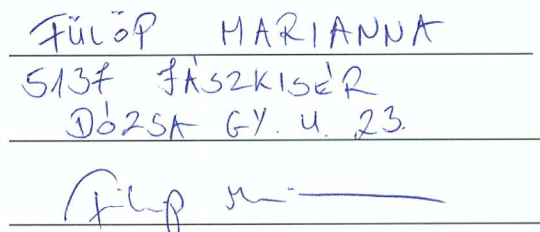 FÜLÖP MARIANNA
5137 JÁSZKISÉR
DÓZSA GY. U. 23.
Fülöp